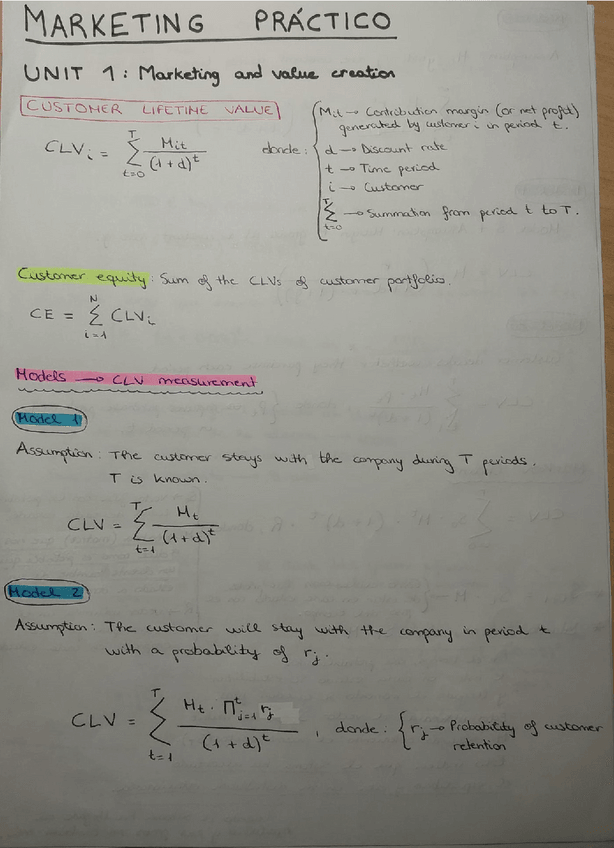 MARKETING PRÁCTICO
UNIT 1: Marketing and value creation
CUSTOMER LIFETIME VALUE
CLVi = Σ_{t=0}^{T} Mit / (1+d)^t donde:
Mit → Contribution margin (or net profit)
generated by customer i in period t.
d → Discount rate
t → Time period
i → Customer
Σ_{t=0}^{T} → Summation from period t to T.
Customer equity: Sum of the CLVs of customer portfolio.
CE = Σ_{i=1}^{N} CLVi
Models → CLV measurement
Model 1
Assumption: The customer stays with the company during T periods.
T is known.
CLV = Σ_{t=1}^{T} Mt / (1+d)^t
Model 2
Assumption: The customer will stay with the company in period t
with a probability of rj.
CLV = Σ_{t=1}^{T} Mt · Π_{j=1}^{t} rj / (1+d)^t , donde. { rj → Probability of customer
retention